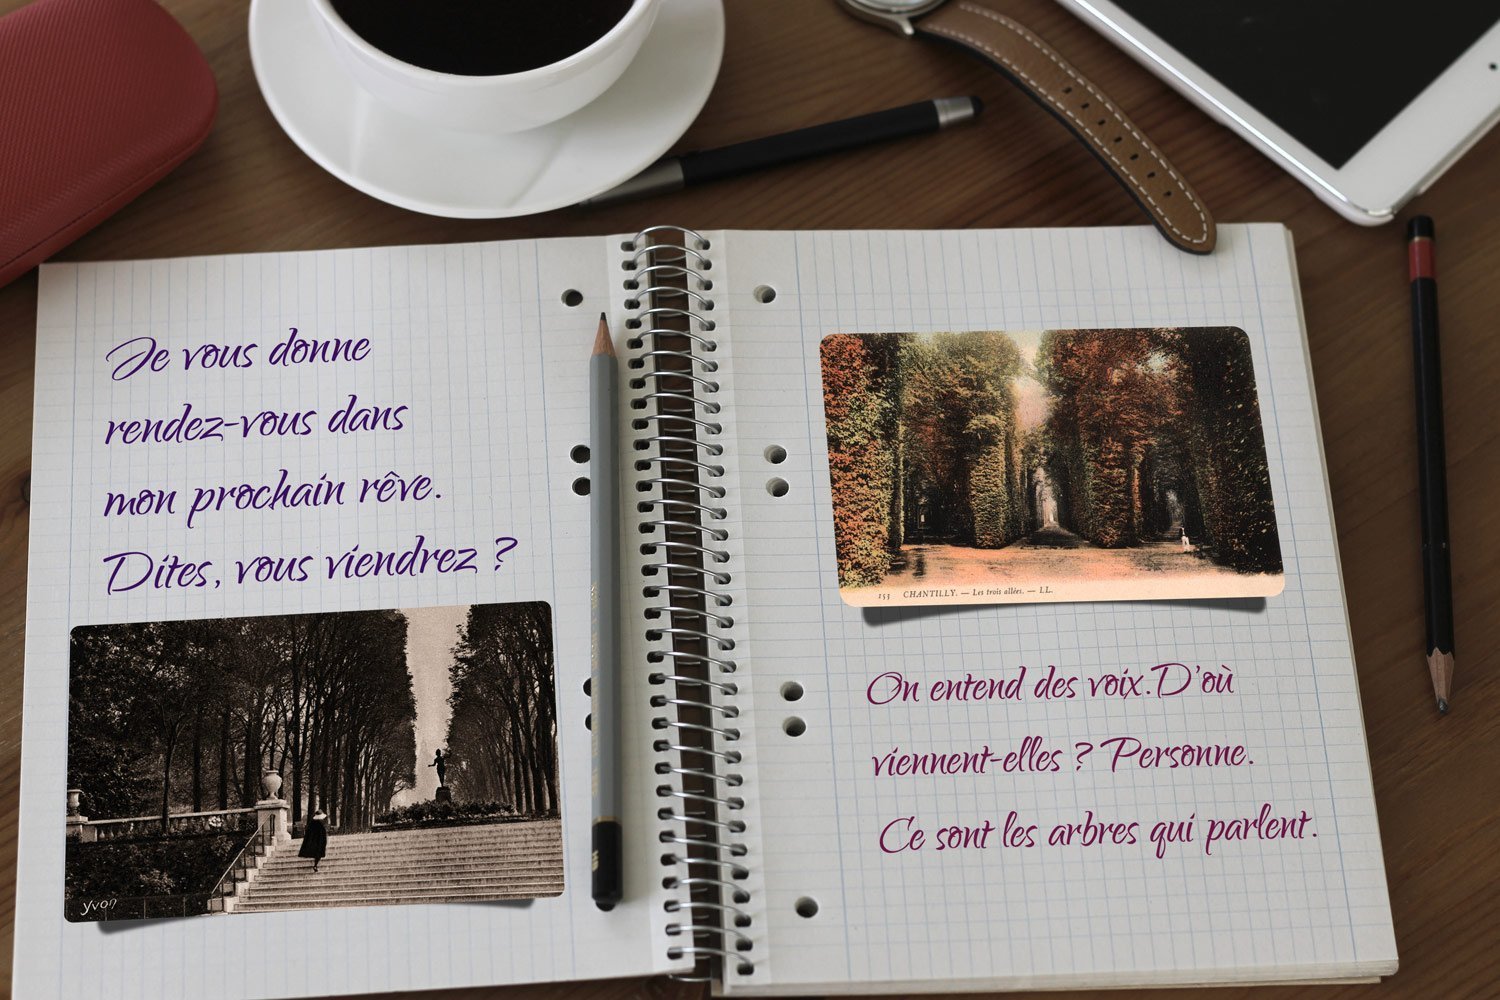 Je vous donne
rendez-vous dans
mon prochain rêve.
Dites, vous viendrez ?
yvon
153 CHANTILLY. — Les trois allées. — LL.
On entend des voix.D'où
viennent-elles ? Personne.
Ce sont les arbres qui parlent.